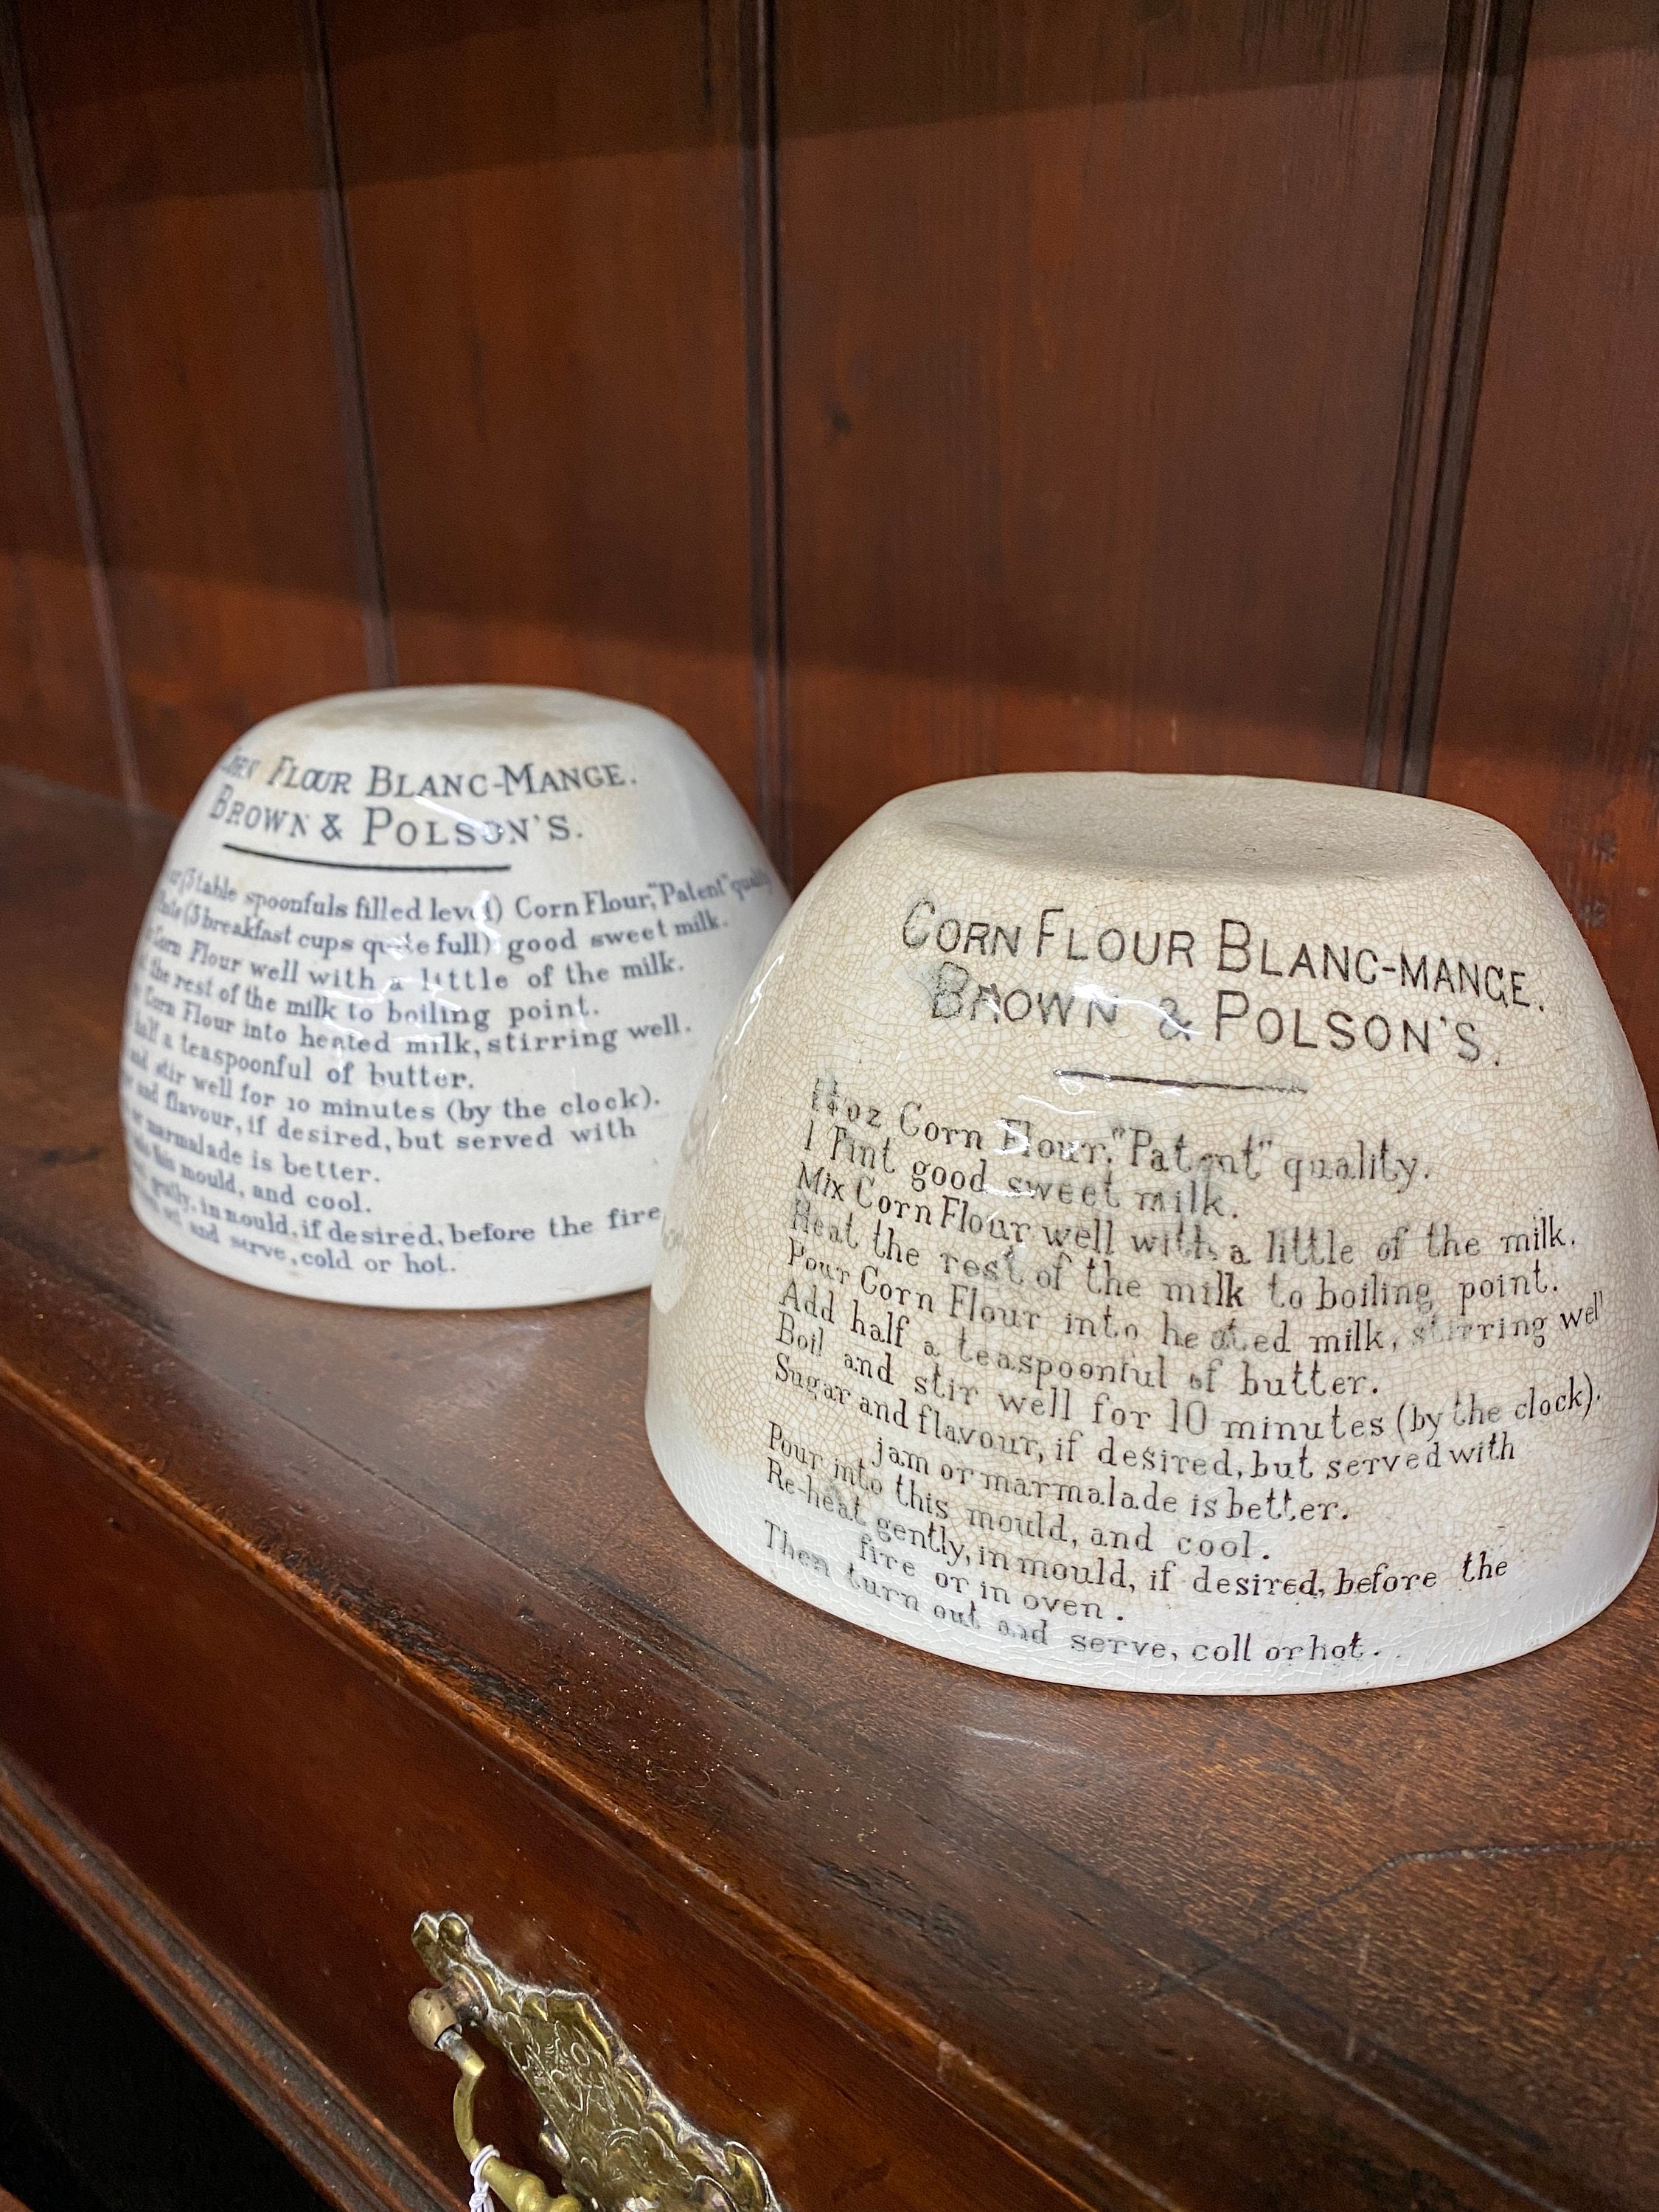 CORN FLOUR BLANC-MANGE.
BROWN & POLSON'S.
(3 table spoonfuls filled level) Corn Flour, "Patent" quality
(3 breakfast cups quite full) good sweet milk.
Corn Flour well with a little of the milk.
the rest of the milk to boiling point.
Corn Flour into heated milk, stirring well.
half a teaspoonful of butter.
and stir well for 10 minutes (by the clock).
and flavour, if desired, but served with
or marmalade is better.
this mould, and cool.
gently, in mould, if desired, before the fire
and serve, cold or hot.
CORN FLOUR BLANC-MANGE.
BROWN & POLSON'S.
oz Corn Flour, "Patent" quality.
1 Pint good sweet milk.
Mix Corn Flour well with a little of the milk.
Heat the rest of the milk to boiling point.
Pour Corn Flour into heated milk, stirring well
Add half a teaspoonful of butter.
Boil and stir well for 10 minutes (by the clock).
Sugar and flavour, if desired, but served with
jam or marmalade is better.
Pour into this mould, and cool.
Re-heat gently, in mould, if desired, before the
fire or in oven.
Then turn out and serve, coll or hot.